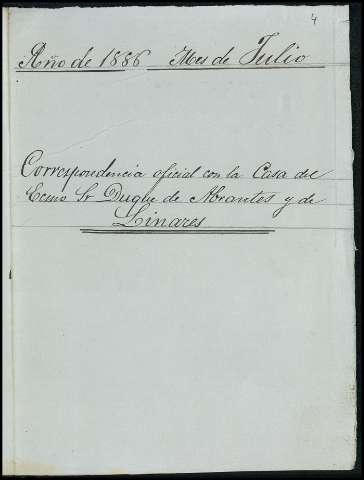 4
Año de 1886 Mes de Julio
Correspondencia oficial con la Casa del
Ecmo Sr Duque de Abrantes y de
Linares